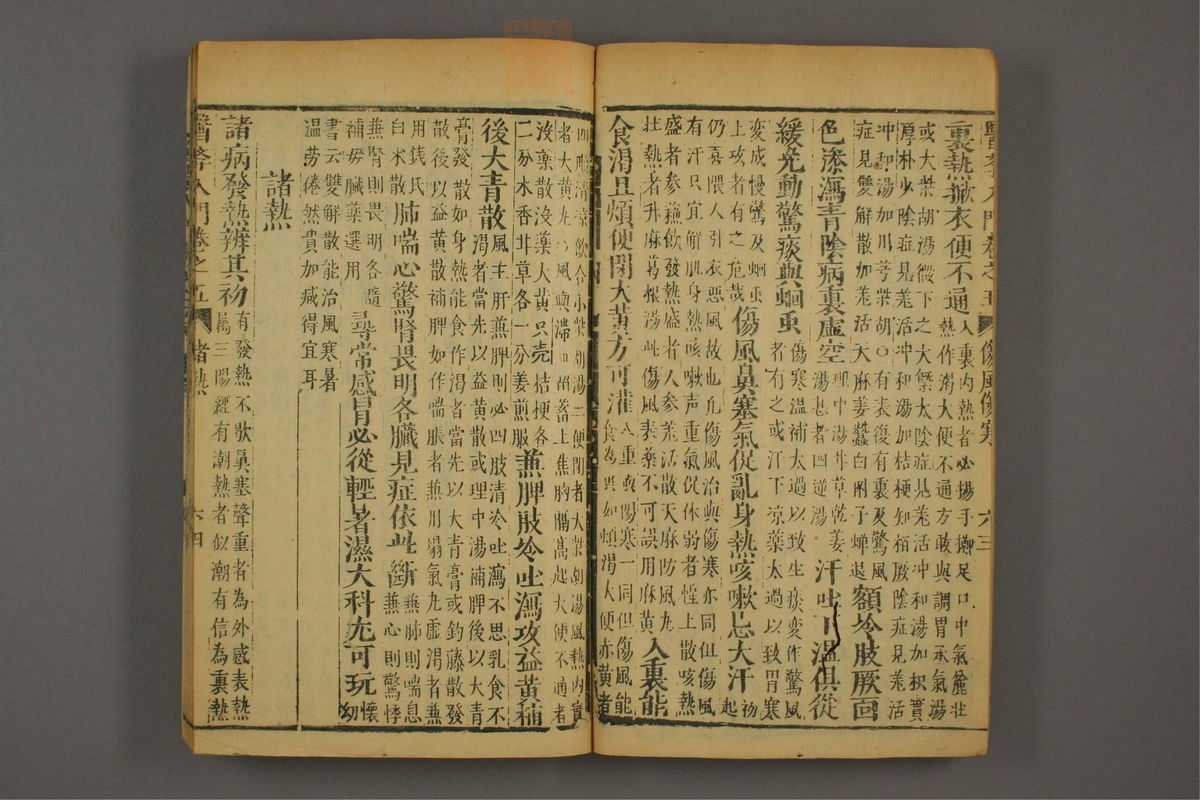 醫學入門卷之五 傷風傷寒 六三
裏熱揿衣便不通入裏內熱者必揚手擲足口中氣麄壯
或大柴胡湯微下之大槩太陰症見羗活冲和湯加枳實
熱作渴大便不通方敢與調胃承氣湯
厚朴少陰症見羗活冲和湯加桔梗知栢厥陰症見羗活
冲和湯加川芎柴胡○有表復有裏及驚風
症見雙解散加羗活天麻姜蠶白附子蟬退額冷肢厥面
色漆瀉青陰病裏虛空理中湯甘草乾姜湯甚者四逆湯汗吐下溫俱從
緩免動驚痰與蛔虫傷寒溫補太過以致生痰變作驚風者有之或汗下凉藥太過以致胃寒
變成慢驚及蛔虫上攻者有之危哉傷風鼻塞氣促亂身熱咳嗽忌大汗初起
仍惡人引衣惡風故也凢傷風治與傷寒亦同但傷風
有汗只宜解肌身熱咳嗽声重氣促体弱者惺上散咳熱
盛者參蘓飲發熱盛者人參羗活散天麻防風丸
壮熱者升麻葛根湯此傷風表藥不可誤用麻黃入裏能
食渴且煩便閉大黃方可灌入裏與陽寒一同但傷風能食為異如煩渴大便赤黃者
四順清凉飲合小柴胡湯二便閉者大柴胡湯風熱內實
者大黃丸
沒藥散沒藥大黃只壳桔梗各
二分木香甘草各一分姜煎服兼脾肢冷吐瀉攻益黃補
後大青散風主肝兼脾則必四肢清冷吐瀉不思乳食不渴者當先以益黃散或理中湯補脾後以大青
膏發散如身熱能食作渴者當先以大青膏或釣藤散發
散後以益黃散補脾如作喘脹者兼用塌氣丸虛渴者兼
用錢氏白术散肺喘心驚腎畏明各臟見症依此斷兼肺則喘息兼心則驚悸
兼腎則畏明各隨補母臟藥選用尋常感冒必從輕暑濕大科尤可玩懷幼
書云雙解散能治風寒暑
溫勞倦然貴加减得宜耳
諸熱
諸病發熱辨其初有發熱不歇鼻塞聲重者為外感表熱属三陽經有潮熱者似潮有信為裏熱
醫學入門卷之五 諸熱 六四